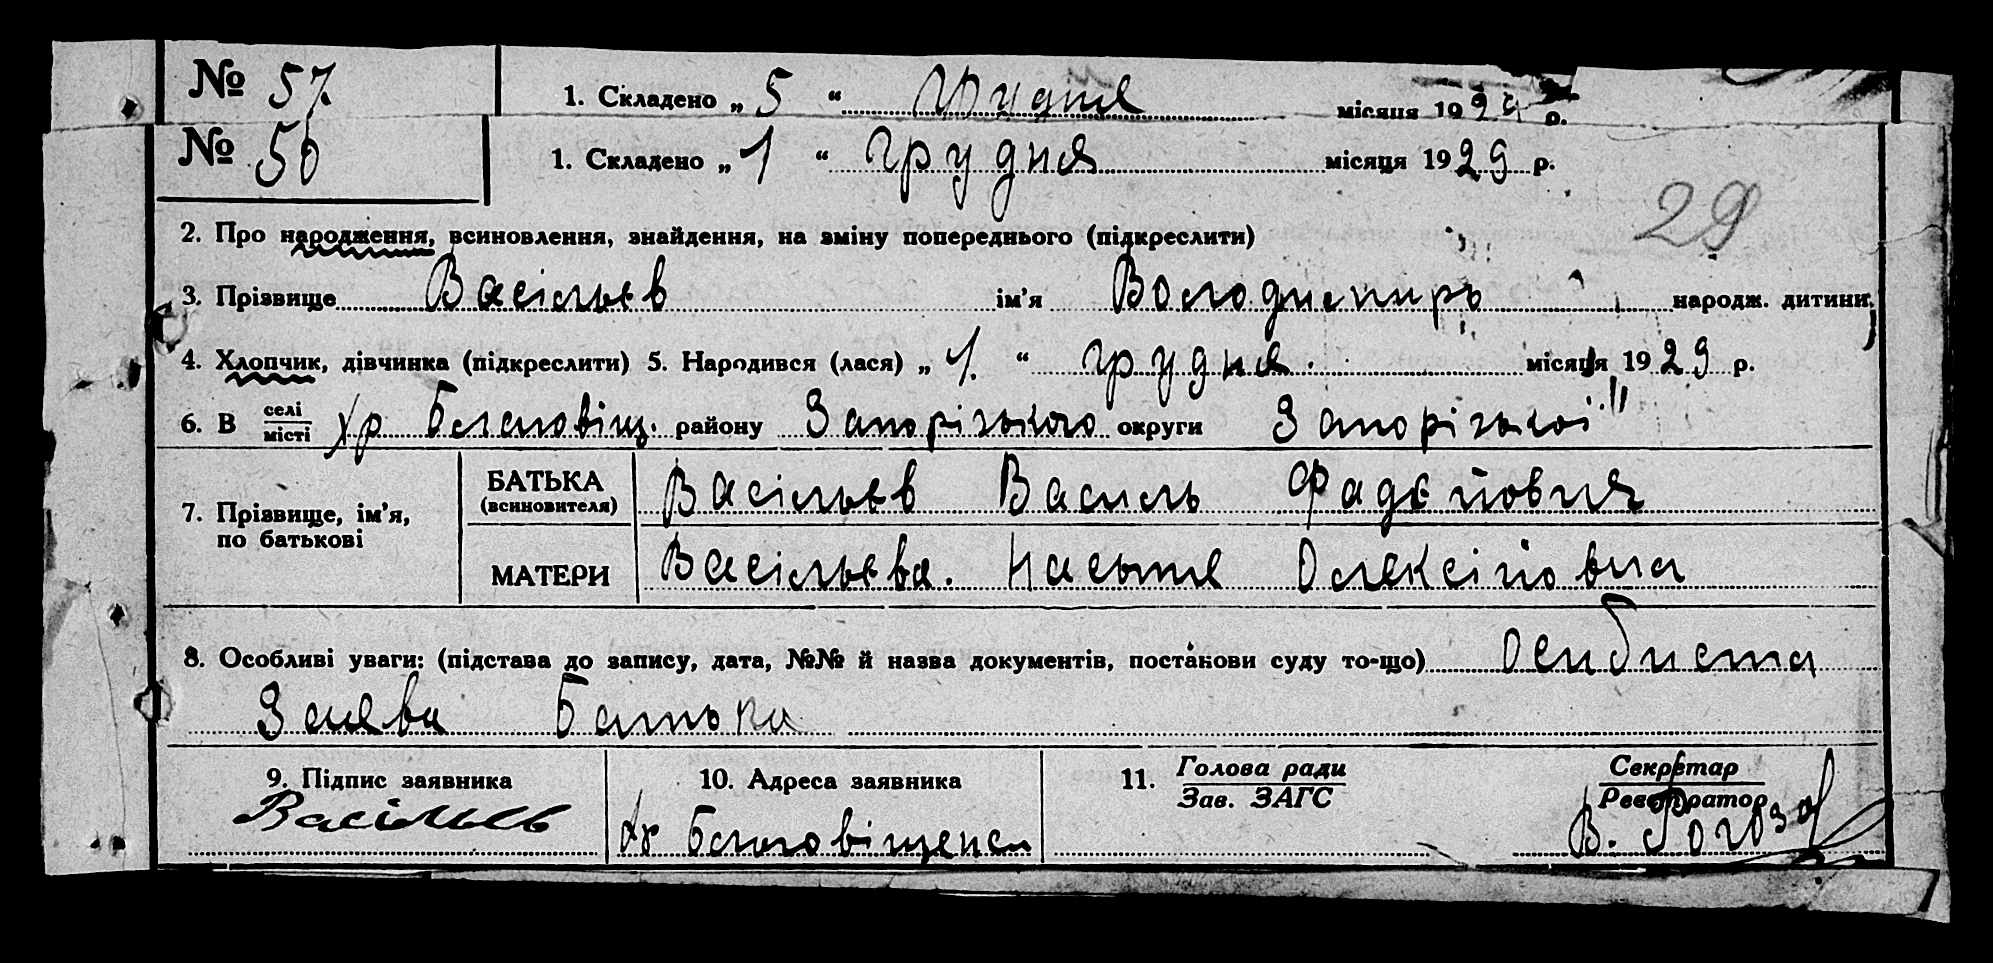 № 57. 1. Складено „ 5 “ грудня місяця 1929 р.
№ 56 1. Складено „ 1 “ грудня місяця 1929 р.
29
2. Про народження, всиновлення, знайдення, на зміну попереднього (підкреслити)
3. Прізвище Васільєв ім’я Володимиръ народж. дитини
4. Хлопчик, дівчинка (підкреслити) 5. Народився (лася) „ 1. “ грудня. місяця 1929 р.
6. В селі місті хр району Запорізького округи Запорізької
7. Прізвище, ім’я, по батькові
БАТЬКА (всиновителя) Васільєв Василь Фадєйовия
МАТЕРИ Васільєва. Настя Олексійовна
8. Особливі уваги: (підстава до запису, дата, №№ й назва документів, постанови суду то-що) особиста
Заява Батька
9. Підпис заявника 10. Адреса заявника 11. Голова ради Зав. ЗАГС Секретар Реєстратор
Васільєв хр В. Рогоза